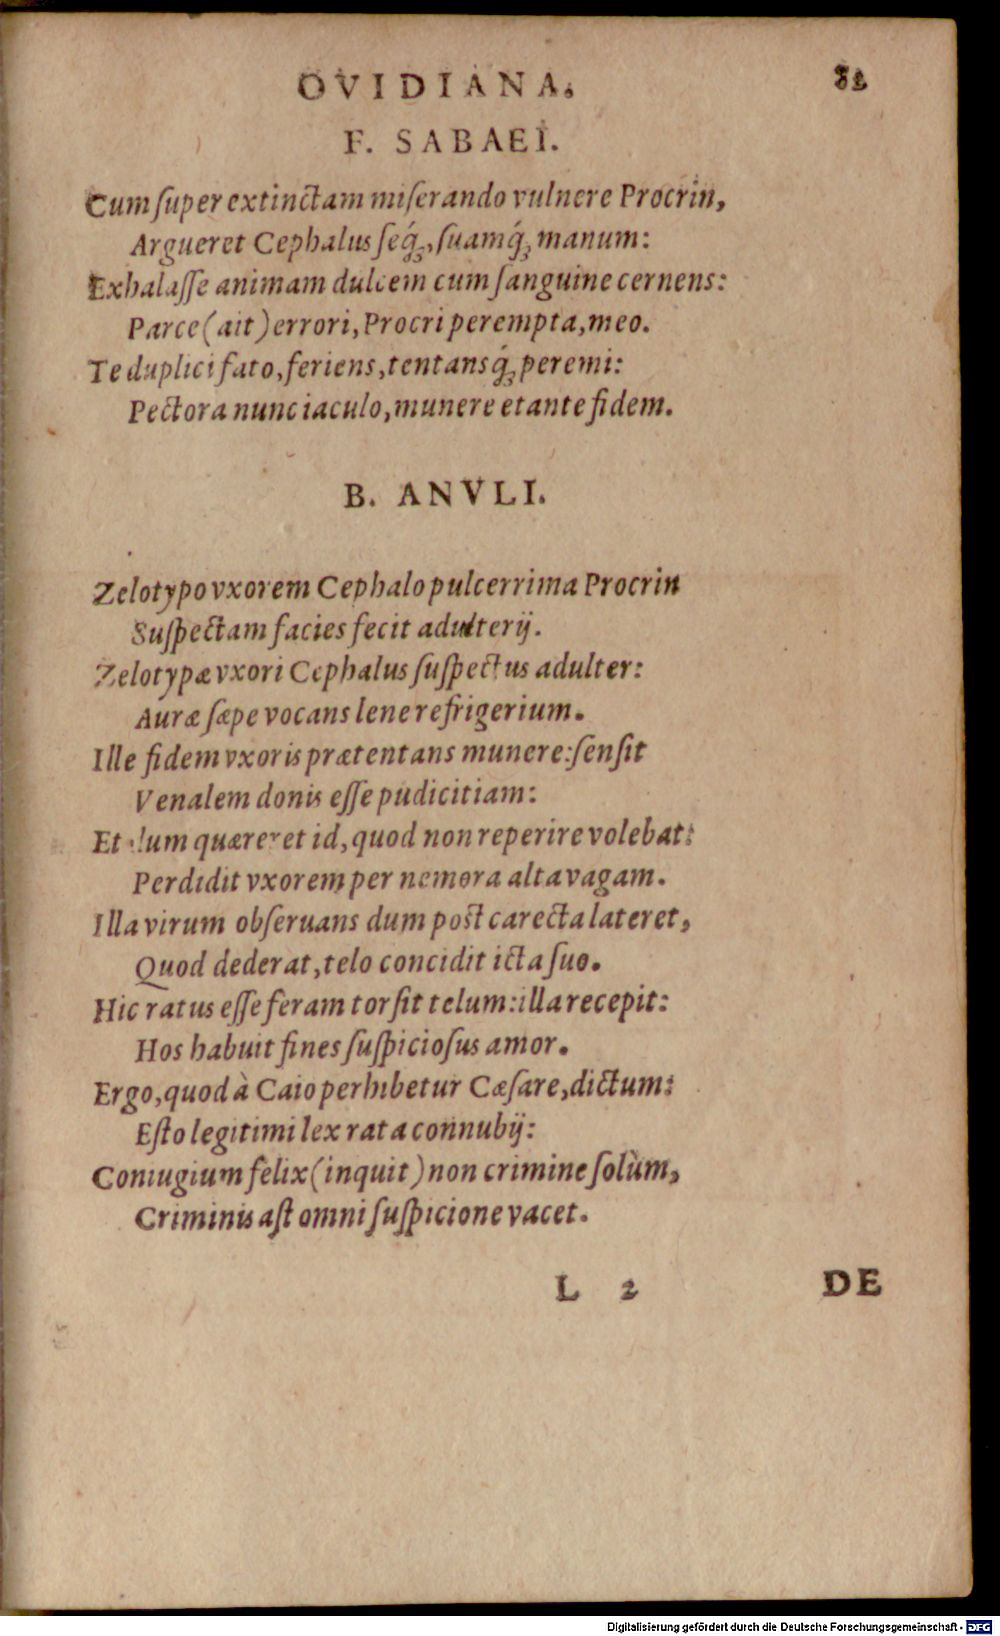 OVIDIANA. 82
F. SABAEI.
Cum ſuper extinctam miſerando vulnere Procrin,
Argueret Cephalus ſeq́ꝫ, ſuamq́ꝫ manum:
Exhalaſſe animam dulcem cum ſanguine cernens:
Parce (ait) errori, Procri perempta, meo.
Te duplici fato, feriens, tentansq́ꝫ peremi:
Pectora nunc iaculo, munere et ante fidem.
B. ANVLI.
Zelotypo vxorem Cephalo pulcerrima Procrin
Suſpectam facies fecit adulterij.
Zelotypæ vxori Cephalus ſuſpectus adulter:
Auræ ſæpe vocans lene refrigerium.
Ille fidem vxoris prætentans munere: ſenſit
Venalem donis eſſe pudicitiam:
Et dum quæreret id, quod non reperire volebat:
Perdidit vxorem per nemora alta vagam.
Illa virum obſeruans dum post carecta lateret,
Quod dederat, telo concidit icta ſuo.
Hic ratus eſſe feram torſit telum: illa recepit:
Hos habuit fines ſuſpicioſus amor.
Ergo, quod à Caio perhibetur Cæſare, dictum:
Eſto legitimi lex rata connubij:
Coniugium felix (inquit) non crimine ſolùm,
Criminis aſt omni ſuſpicione vacet.
L 2 DE
Digitalisierung gefördert durch die Deutsche Forschungsgemeinschaft - DFG